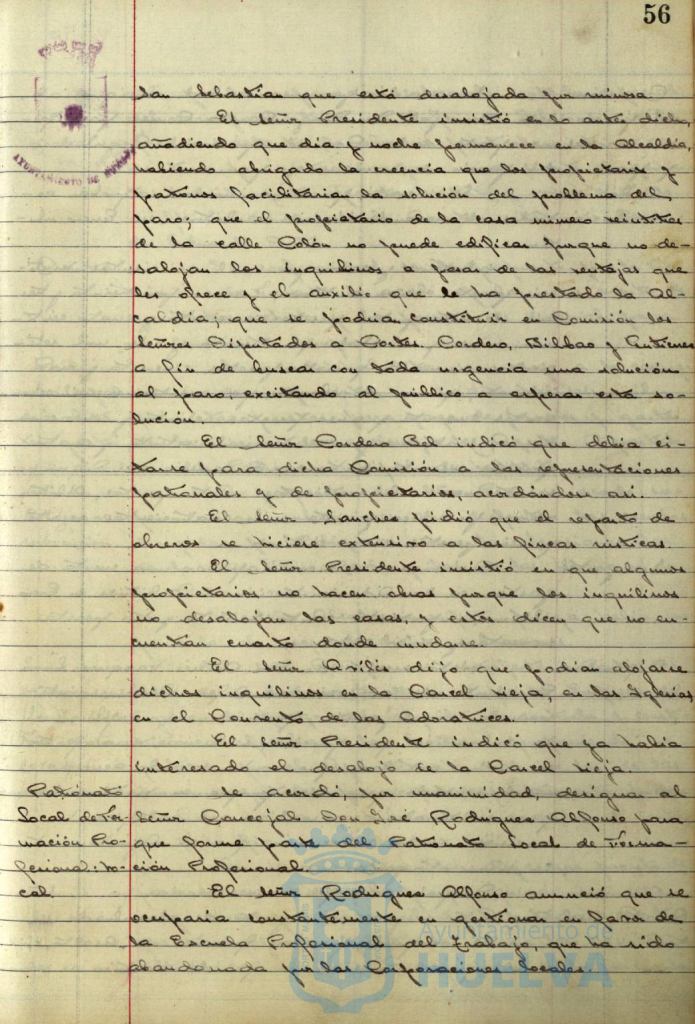 56
San Sebastián que está desalojada por ruinosa
El Señor Presidente insistió en lo antes dicho,
añadiendo que dia y noche permanece en la Alcaldía,
habiendo abrigado la creencia que los propietarios y
patronos facilitarian la solución del problema del
paro; que el propietario de la casa número veintitres
de la calle Colón no puede edificar porque no de-
salojan los inquilinos a pesar de las ventajas que
les ofrece y el auxilio que le ha prestado la Al-
caldía; que se podrian constituir en Comisión los
Señores Diputados a Cortes. Cordero, Bilbao y Gutierrez
a fin de buscar con toda urgencia una solución
al paro, excitando al público a esperar esta so-
lución.
El Señor Cordero Bel indicó que debia ci-
tarse para dicha Comisión a las representaciones
patronales y de propietarios, acordándose así.
El Señor Sanchez pidió que el reparto de
obreros se hiciese extensivo a las fincas rústicas.
El Señor Presidente insistió en que algunos
propietarios no hacen obras porque los inquilinos
no desalojan las casas, y estos dicen que no en-
cuentran cuarto donde mudarse.
El Señor dijo que podian alojarse
dichos inquilinos en la Carcel vieja, en las Iglesias,
en el Convento de las Adoratrices.
El Señor Presidente indicó que ya habia
interesado el desalojo de la Carcel vieja.
Patronato
Local de For-
mación Pro-
fesional: vo-
cal.
Se acordó, por unanimidad, designar al
Señor Concejal Don José Rodriguez Alfonso para
que forme parte del Patronato Local de Forma-
ción Profesional.
El Señor Rodriguez Alfonso anunció que se
ocuparia constantemente en gestionar en favor de
la Escuela Profesional del Trabajo, que ha sido
abandonada por las Corporaciones locales.
AYUNTAMIENTO DE HUELVA
Ayuntamiento de
HUELVA